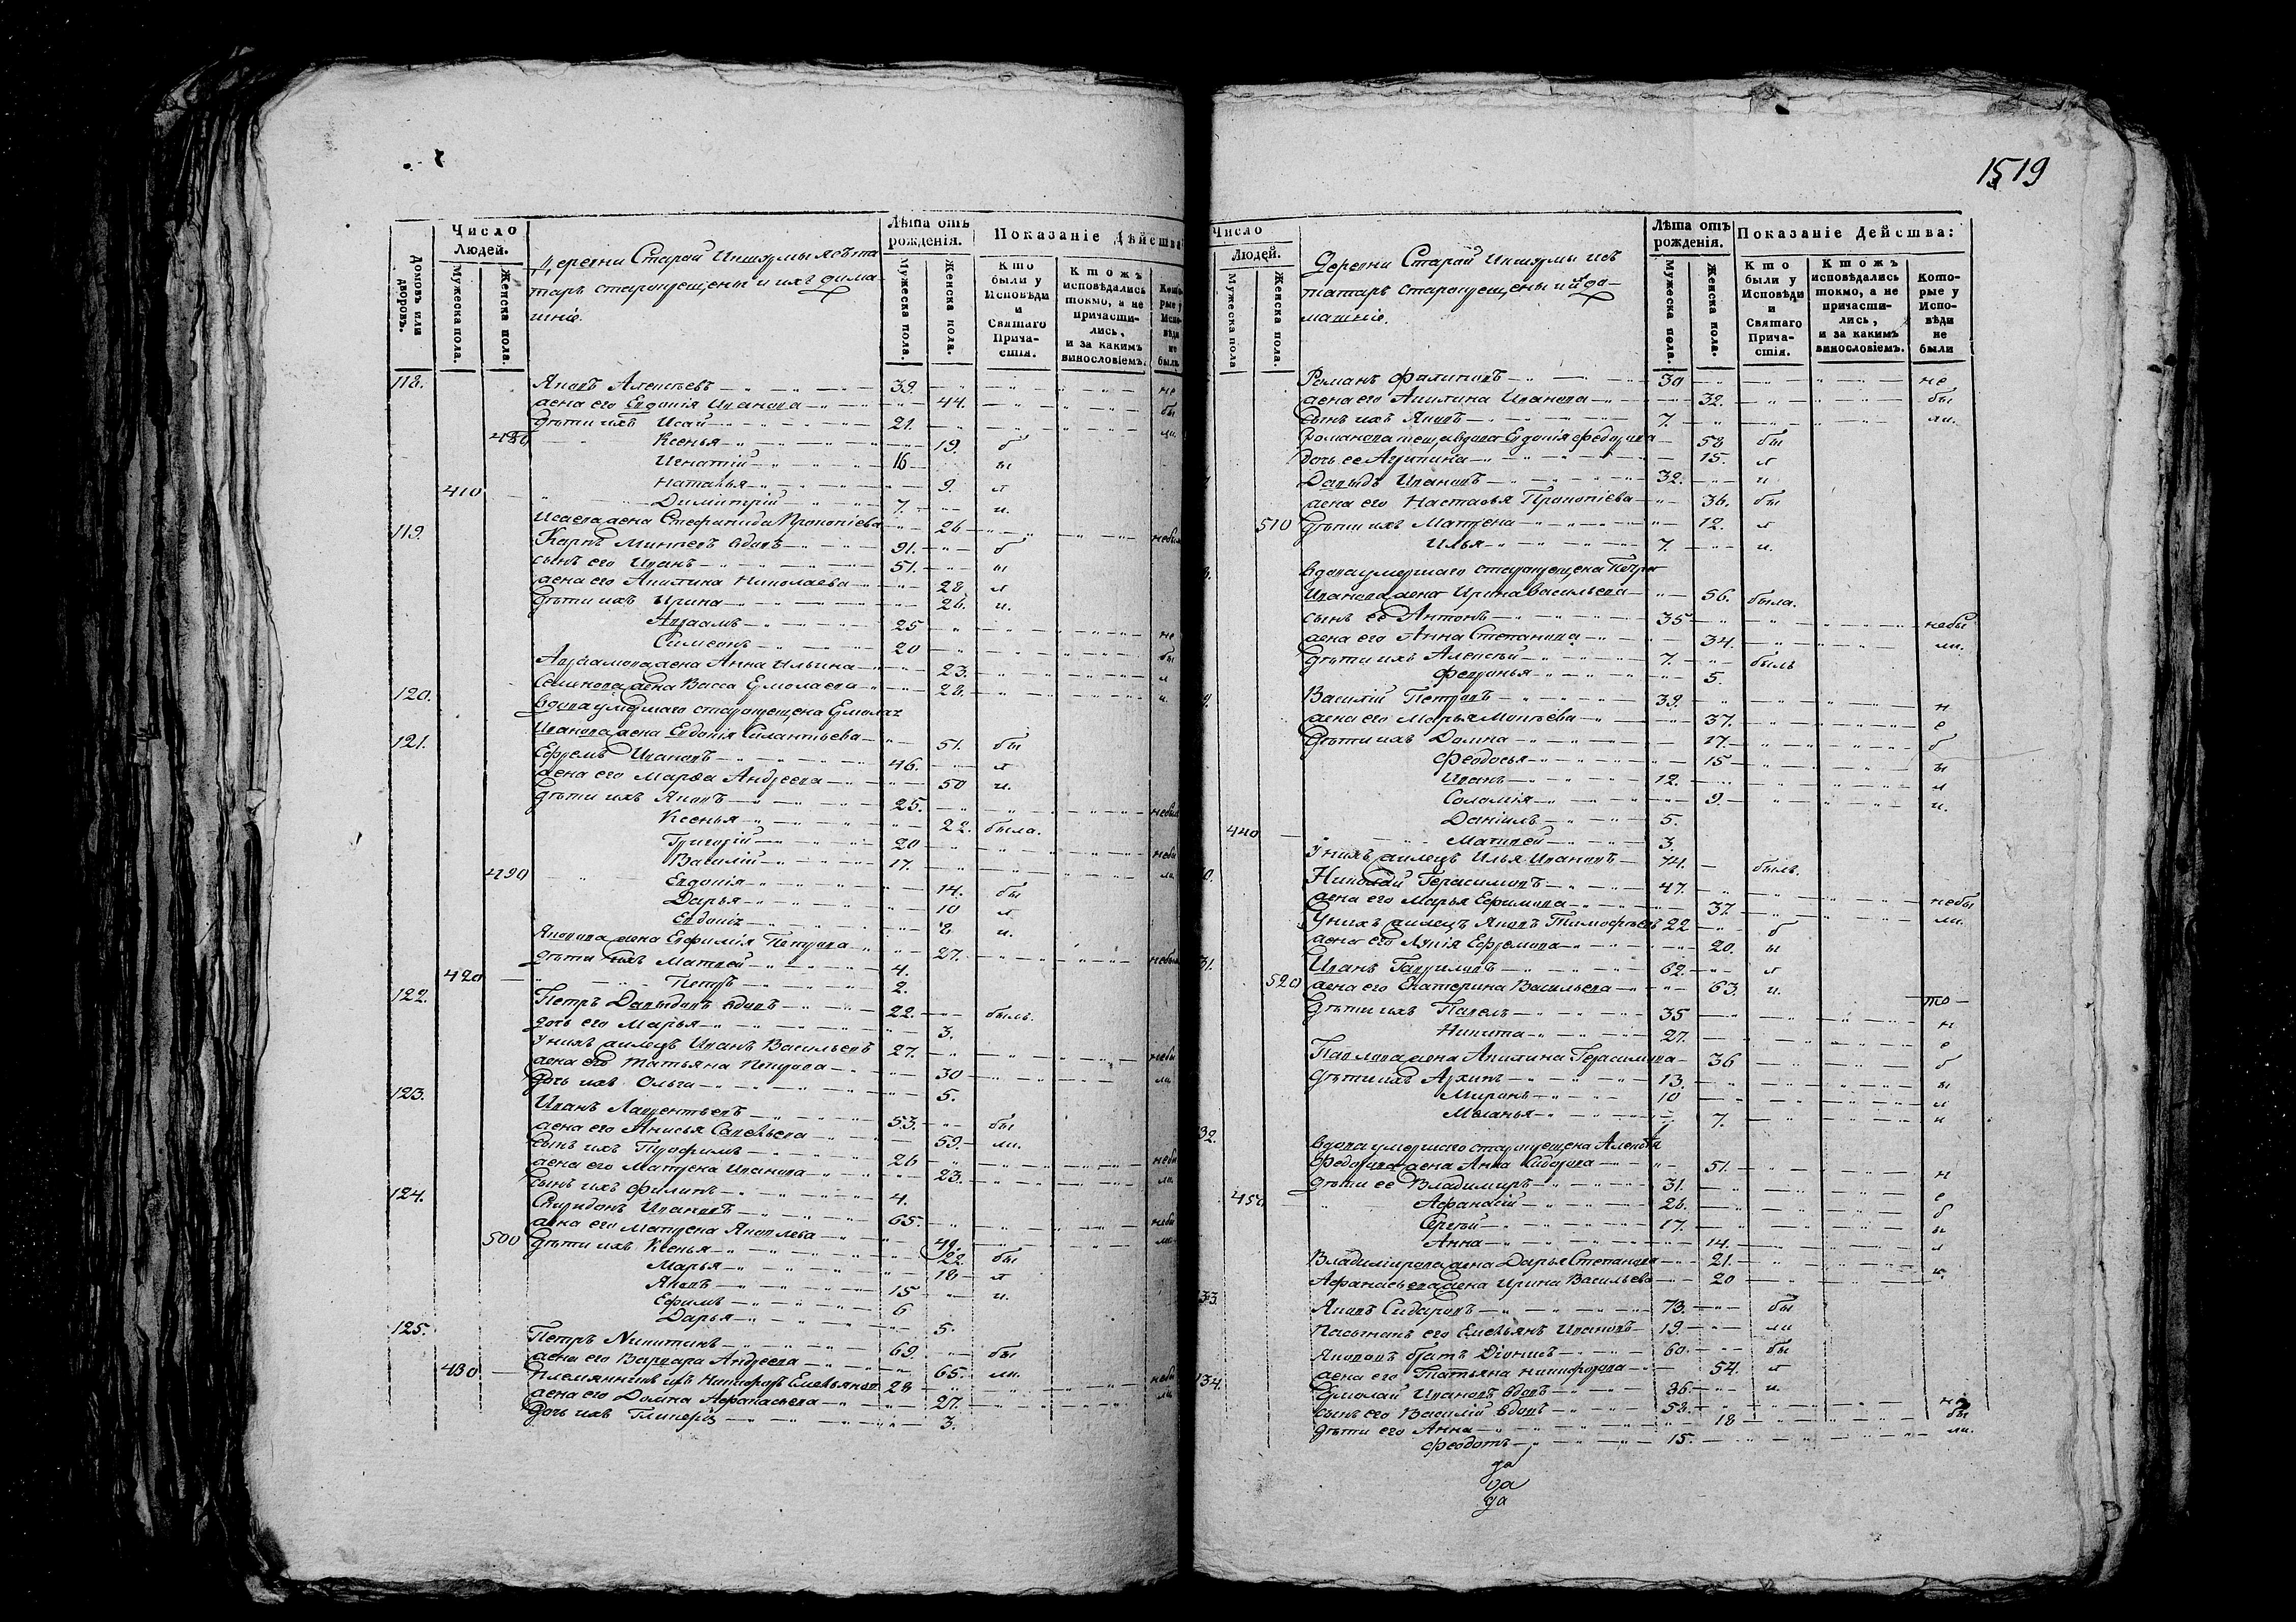 1519
Число
Людей.
Домовъ или дворовъ.
Мужеска пола.
Женска пола.
Деревни Старой
старокрещены и ихъ домашніе.
Лѣта отъ рожденія.
Мужеска пола.
Женска пола.
Показаніе Дѣйства
Кто были у Исповѣди и Святаго Причастія.
Ктожъ исповѣдались токмо, а не причастились, и за какимъ винословіемъ.
118. Яковъ Алексѣевъ 39. не
жена его Евдокія Иванова 44. бы
дѣти ихъ Исай 21. ли.
480 Ксенья 19. б
Игнатій 16 ы
Наталья 9. л
410 Димитрій 7. и.
Исаева жена Стефанида Прокопіева 26
119. Карпъ вдовъ 91. б
сынъ его Иванъ 51. ы
жена его Акилина Николаева 28. л
дѣти ихъ Ирина 26. и.
Авраамъ 25 не
Симеонъ 20 бы
Авраамова жена Анна Ильина 23. л
Семенова жена Васса Ермолаева 28. и.
120. вдова умершаго старокрещена Ермолая
Иванова жена Евдокія Силантьева 51. бы
121. Ефремъ Ивановъ 46. л
жена его Марѳа Андреева 50 и.
дѣти ихъ Яковъ 25.
Ксенья 22. была.
Григорій 20
Василій 17. ли.
490 Евдокія 14. бы
Дарья 10 л
Евдокія 8 и.
Яковова жена Евфимія Петрова 27.
дѣти ихъ Матвей 4.
420 Петръ 2.
122. Петръ Давыдовъ вдовъ 22. былъ.
дочь его Марья 3.
У нихъ жилецъ Иванъ Васильевъ 27.
жена его Татьяна Петрова 30 ли.
дочь ихъ Ольга 5.
123. Иванъ Лаврентьевъ 53. бы
жена его Анисья Савельева 59. ли.
сынъ ихъ Трофимъ 26
жена его Матрена Иванова 23. ли.
сынъ ихъ Филипъ 4.
124. Спиридонъ Ивановъ 65.
жена его Матрена Яковлева ли.
500 дѣти ихъ Ксенья 22. бы
Марья 18 л
Яковъ 15 и.
Ефимъ 6
Дарья 5.
125. Петръ Никитинъ 69. бы
жена его Варвара Андреева 65. ли.
430 племянникъ ихъ Никифоръ Емельяновъ 28
жена его Домна Афанасьева 27. ли
дочь ихъ Гликерія 3.
Число
Людей.
Мужеска пола
Женска пола.
Деревни Старой
татаръ старокрещены и ихъ домашніе.
Лѣта отъ рожденія.
Мужеска пола.
Женска пола.
Показаніе Дейсшва:
Кто были у Исповѣди и Святаго Причастія.
Ктожъ исповѣдались токмо, а не причастились, и за какимъ винословіемъ.
Которые у Исповѣди не были
Романъ Филиповъ 30 не
жена его Акилина Иванова 32. бы
сынъ ихъ Яковъ 7. ли.
Романова теща вдова Евдокія Федорова 58 бы
дочь ее Агрипина 15. л
Давыдъ Ивановъ 32. и
жена его Настасья Прокопіева 36. бы
510 дѣти ихъ Матрена 12. л
Илья 7. и.
вдова умершаго старокрещена Петра
Иванова жена Ирина Васильева 56. была.
сынъ ее Антонъ 35 небы
жена его Анна Степанова 34. ли.
дѣти ихъ Алексѣй 7. былъ
Февронья 5.
Василій Петровъ 39. н
жена его Марья 37. е
дѣти ихъ Домна 17. б
Феодосья 15 ы
Иванъ 12. л
Соломія 9. и.
Даніилъ 5.
440 Матвей 3.
У нихъ жилецъ Илья Ивановъ 74. былъ.
Николай Герасимовъ 47.
жена его Марья Ефимова 37. небы
У нихъ жилецъ Яковъ Тимофѣевъ 22 б ли.
жена его Ефремова 20. ы
31. Иванъ Гавриловъ 62. л
520 жена его Екатерина Васильева 63. и.
дѣти ихъ Павелъ 35 то
Никита 27. н
Павлова жена Акилина Герасимова 36 е
дѣти ихъ Архипъ 13. б
Миронъ 10 ы
Маланья 7. л и
32. вдова умершаго старокрещена Алексѣя
Федорова жена Анна Сидорова 51. н
дѣти ее Владимиръ 31. е
450 Афанасій 26. б
Сергѣй 17. ы
Анна 14. л
Владимірова жена Дарья Степанова 21. и.
Афанасьева жена Ирина Васильева 20
33. Яковъ Сидаровъ 73. бы
пасынокъ его Емельянъ Ивановъ 19. ли
Якововъ братъ Діонисъ 60. бы
жена его Татьяна Никифорова 54. л
134. Ермолай Ивановъ вдовъ 36. и.
сынъ его Василій вдовъ 58. не
дѣти его Анна 18 бы
Феодотъ 15. ли.